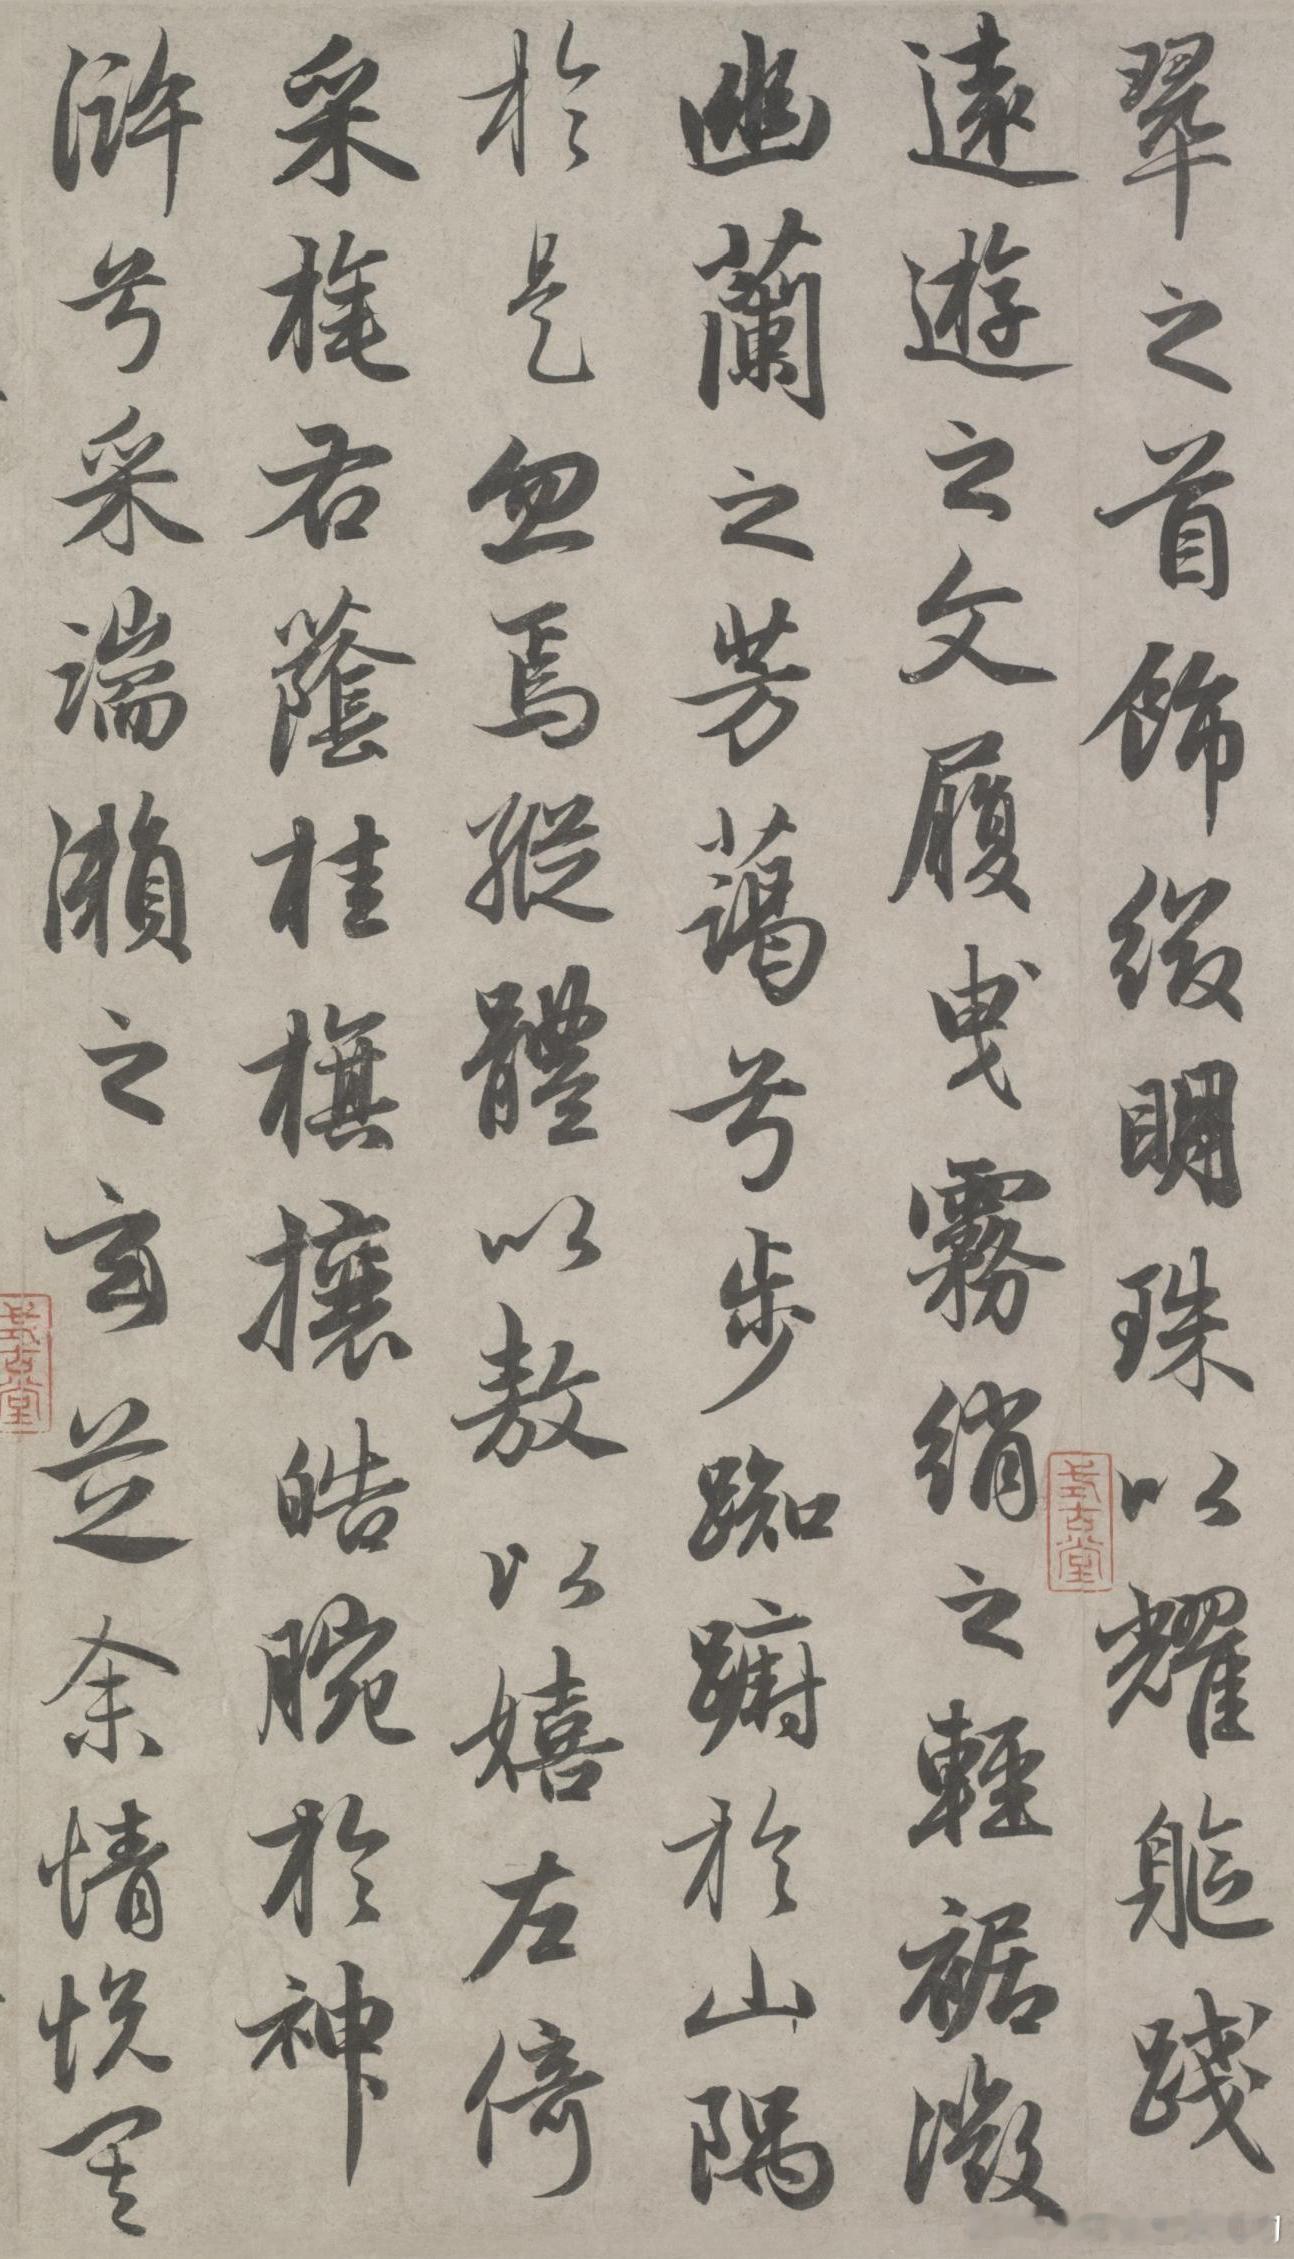 翠之首飾綴明珠以耀軀踐
遠遊之文履曳霧綃之輕裾微
幽蘭之芳藹兮步踟躕於山隅
於是忽焉縱體以敖以嬉左倚
采旄右蔭桂旗攘皓腕於神
滸兮采湍瀨之玄芝余情悅其
式古堂
式古堂